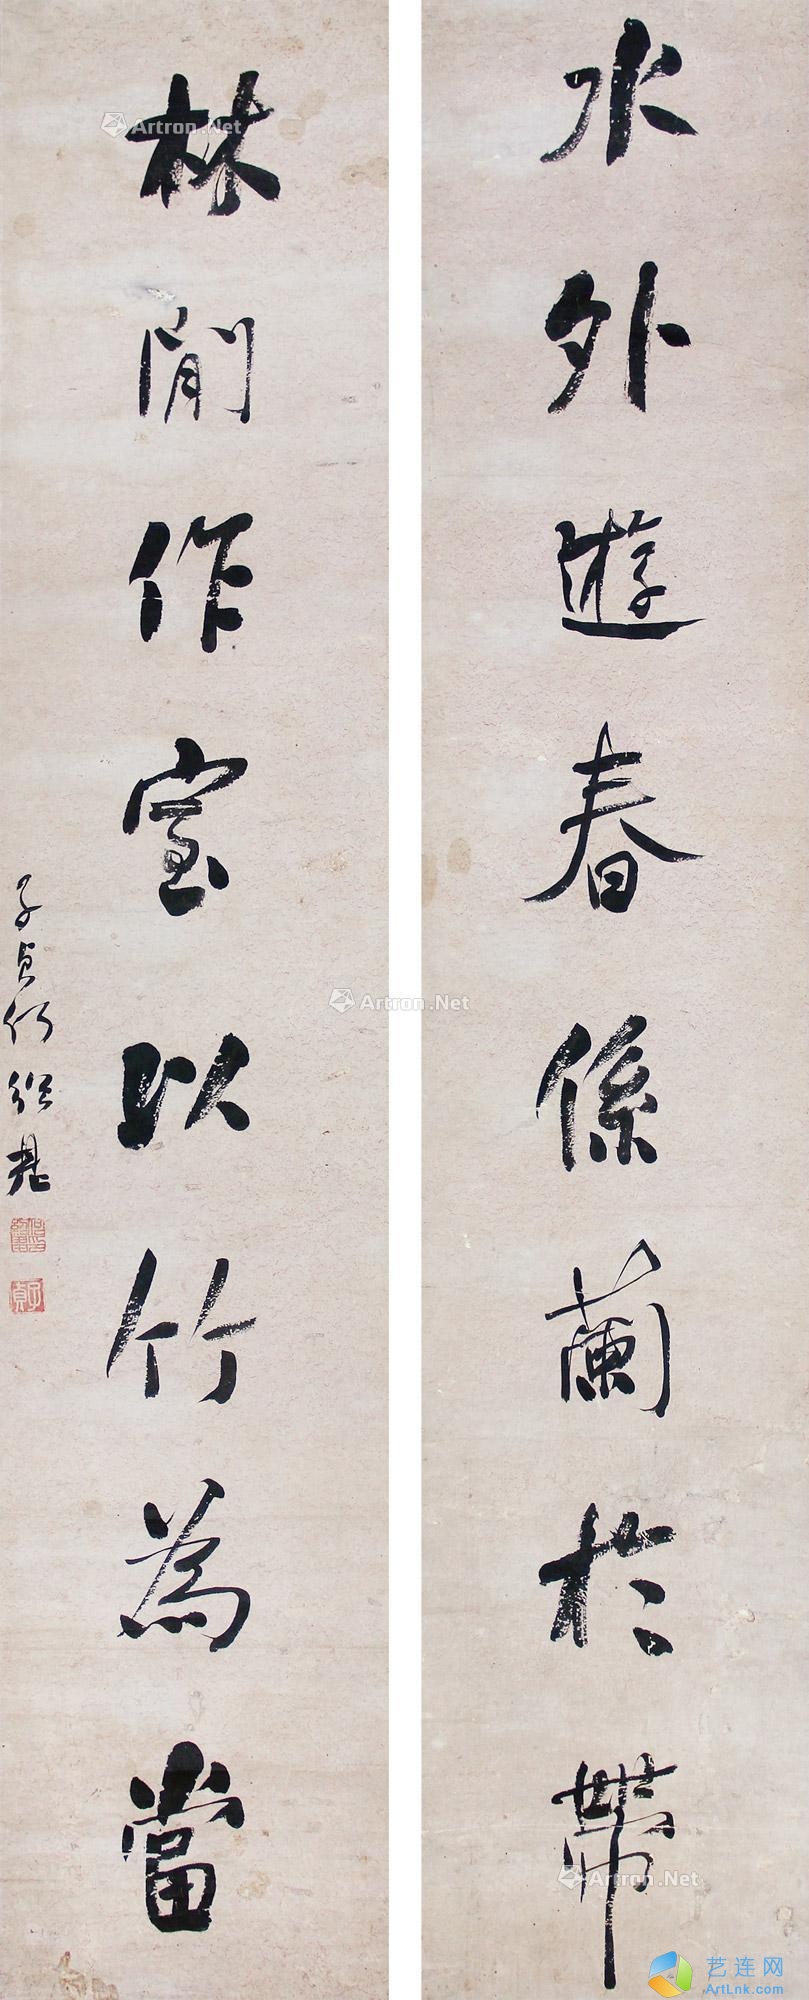 水外遊春係蘭於帶
林閒作室以竹為當
子貞何紹基
子貞
Artron.Net
Artron.Net
Artron.Net
Artron.Net
艺连网
ArtLnk.com